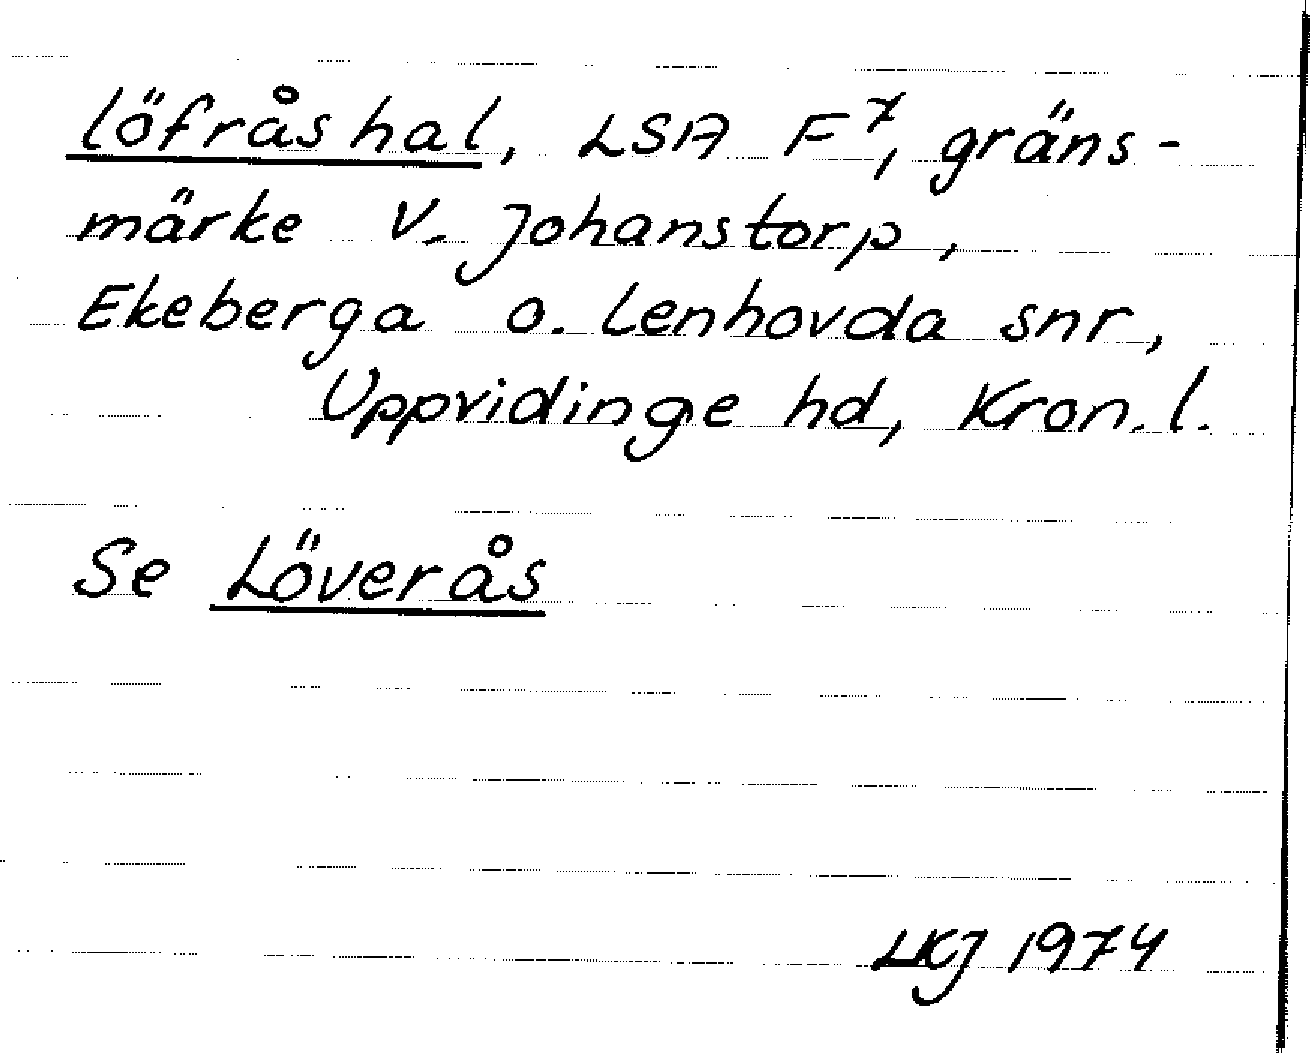 löfråshal, LSA F⁷, gräns-
märke V. Johanstorp,
Ekeberga o. Lenhovda snr,
Uppvidinge hd, Kron. l.
Se Löverås
LKJ 1974